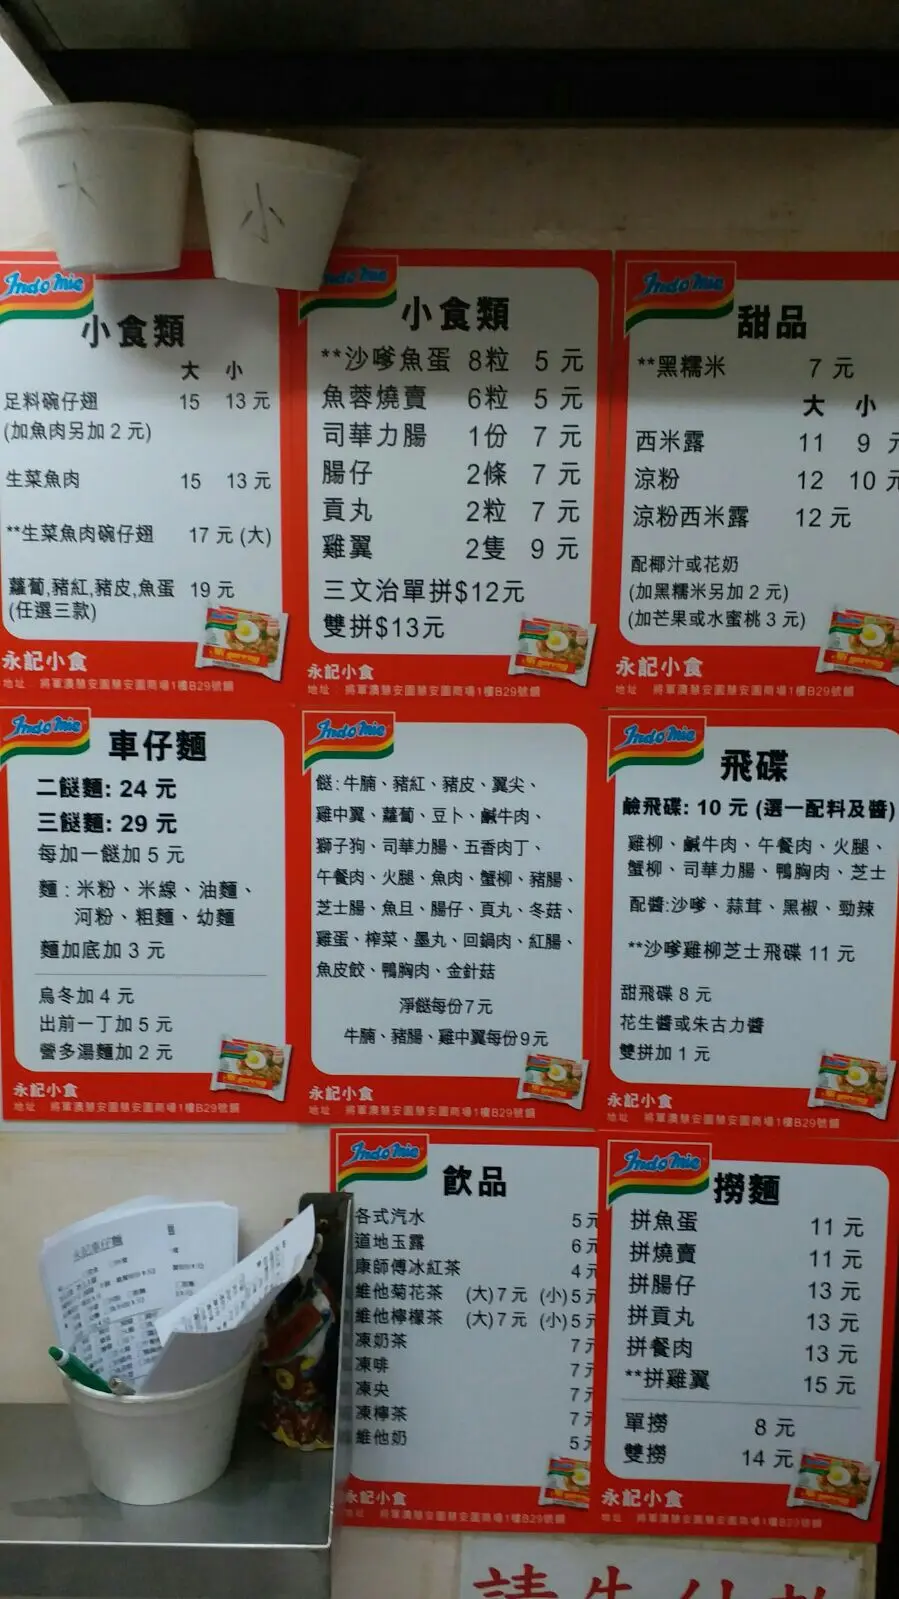 大
小
Indomie
小食類
大 小
足料碗仔翅 15 13元
(加魚肉另加2元)
生菜魚肉 15 13元
**生菜魚肉碗仔翅 17元(大)
蘿蔔,豬紅,豬皮,魚蛋 19元
(任選三款)
永記小食
地址 將軍澳慧安園慧安園商場1樓B29號舖
Indomie
小食類
**沙嗲魚蛋 8粒 5元
魚蓉燒賣 6粒 5元
司華力腸 1份 7元
腸仔 2條 7元
貢丸 2粒 7元
雞翼 2隻 9元
三文治單拼$12元
雙拼$13元
永記小食
地址 將軍澳慧安園慧安園商場1樓B29號舖
Indomie
甜品
**黑糯米 7元
大 小
西米露 11 9元
涼粉 12 10元
涼粉西米露 12元
配椰汁或花奶
(加黑糯米另加2元)
(加芒果或水蜜桃3元)
永記小食
地址 將軍澳慧安園慧安園商場1樓B29號舖
Indomie
車仔麵
二餸麵: 24元
三餸麵: 29元
每加一餸加5元
麵:米粉、米線、油麵、
河粉、粗麵、幼麵
麵加底加3元
烏冬加4元
出前一丁加5元
營多湯麵加2元
永記小食
地址 將軍澳慧安園慧安園商場1樓B29號舖
Indomie
餸:牛腩、豬紅、豬皮、翼尖、
雞中翼、蘿蔔、豆卜、鹹牛肉、
獅子狗、司華力腸、五香肉丁、
午餐肉、火腿、魚肉、蟹柳、豬腸、
芝士腸、魚旦、腸仔、頁丸、冬菇、
雞蛋、榨菜、墨丸、回鍋肉、紅腸、
魚皮餃、鴨胸肉、金針菇
淨餸每份7元
牛腩、豬腸、雞中翼每份9元
永記小食
地址 將軍澳慧安園慧安園商場1樓B29號舖
Indomie
飛碟
鹼飛碟: 10元(選一配料及醬)
雞柳、鹹牛肉、午餐肉、火腿、
蟹柳、司華力腸、鴨胸肉、芝士
配醬:沙嗲、蒜茸、黑椒、勁辣
**沙嗲雞柳芝士飛碟 11元
甜飛碟8元
花生醬或朱古力醬
雙拼加1元
永記小食
地址 將軍澳慧安園慧安園商場1樓B29號舖
永記車仔麵
Indomie
飲品
各式汽水 5元
道地玉露 6元
康師傅冰紅茶 4元
維他菊花茶 (大)7元 (小)5元
維他檸檬茶 (大)7元 (小)5元
凍奶茶 7元
凍啡 7元
凍央 7元
凍檸茶 7元
維他奶 5元
永記小食
地址 將軍澳慧安園慧安園商場1樓B29號舖
Indomie
撈麵
拼魚蛋 11元
拼燒賣 11元
拼腸仔 13元
拼貢丸 13元
拼餐肉 13元
**拼雞翼 15元
單撈 8元
雙撈 14元
永記小食
地址 將軍澳慧安園慧安園商場1樓B29號舖
請先付款